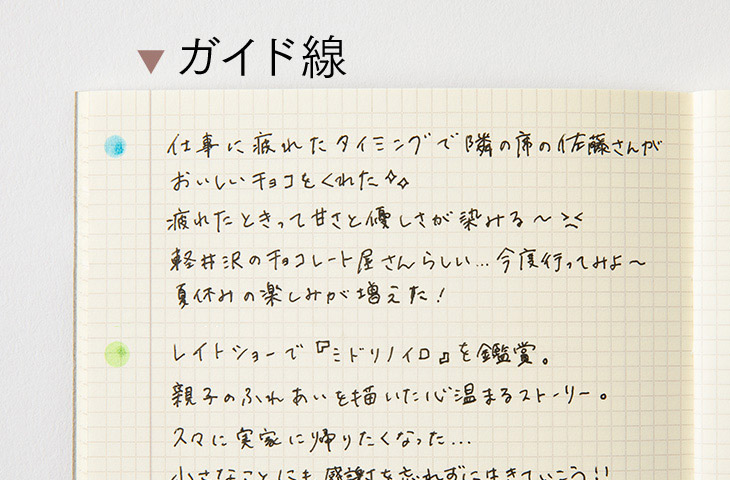 ▼ ガイド線
仕事に疲れたタイミングで隣の席の佐藤さんが
おいしいチョコをくれた✧✧
疲れたときって甘さと優しさが染みる〜><
軽井沢のチョコレート屋さんらしい…今度行ってみよ〜
夏休みの楽しみが増えた!
レイトショーで『ミドリノイロ』を鑑賞。
親子のふれあいを描いた心温まるストーリー。
久々に実家に帰りたくなった…
小さなことにも感謝を忘れずに生きていこう!!